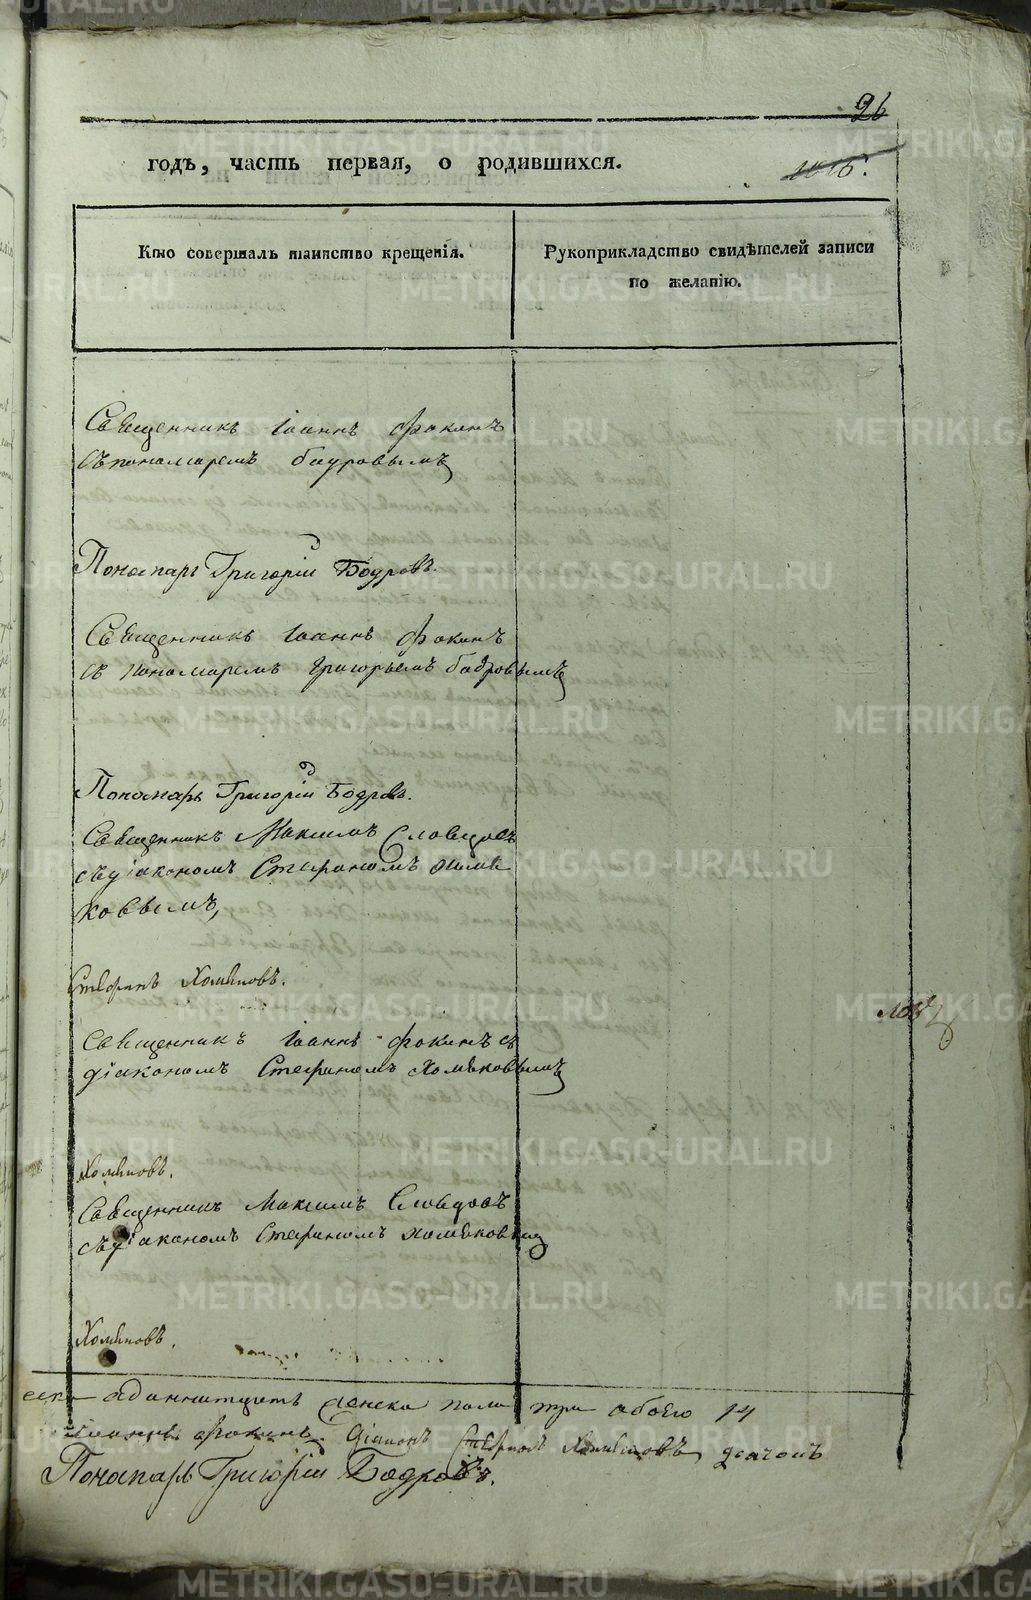 96
годъ, часть первая, о родившихся.
1015.
Кто совершалъ таинство крещенія.
Рукоприкладство свидѣтелей записи по желанію.
Священникъ Іоаннъ Фокинъ
съ пономаремъ бодровымъ
Пономарь Григорій Бодровъ.
Священникъ Іоаннъ Фокинъ
съ пономаремъ григорьемъ бодровымъ
Пономарь Григорій Бодровъ.
Священникъ Максимъ Словцовъ
съ діакономъ Стефаномъ хомя
ковымъ,
Стефанъ Хомяковъ.
Священникъ Іоаннъ Фокинъ съ
діакономъ Стефаномъ Хомяковымъ
Хомяковъ.
Священникъ Максимъ Словцовъ
съ діакономъ Стефаномъ хомяковым
Хомяковъ.
одиннатцать женска пола три обоего 14
Іоаннъ Фокинъ Діаконъ Стефанъ Хомяковъ дьячокъ
Пономарь Григорій Бодровъ.
METRIKI.GASO-URAL.RU